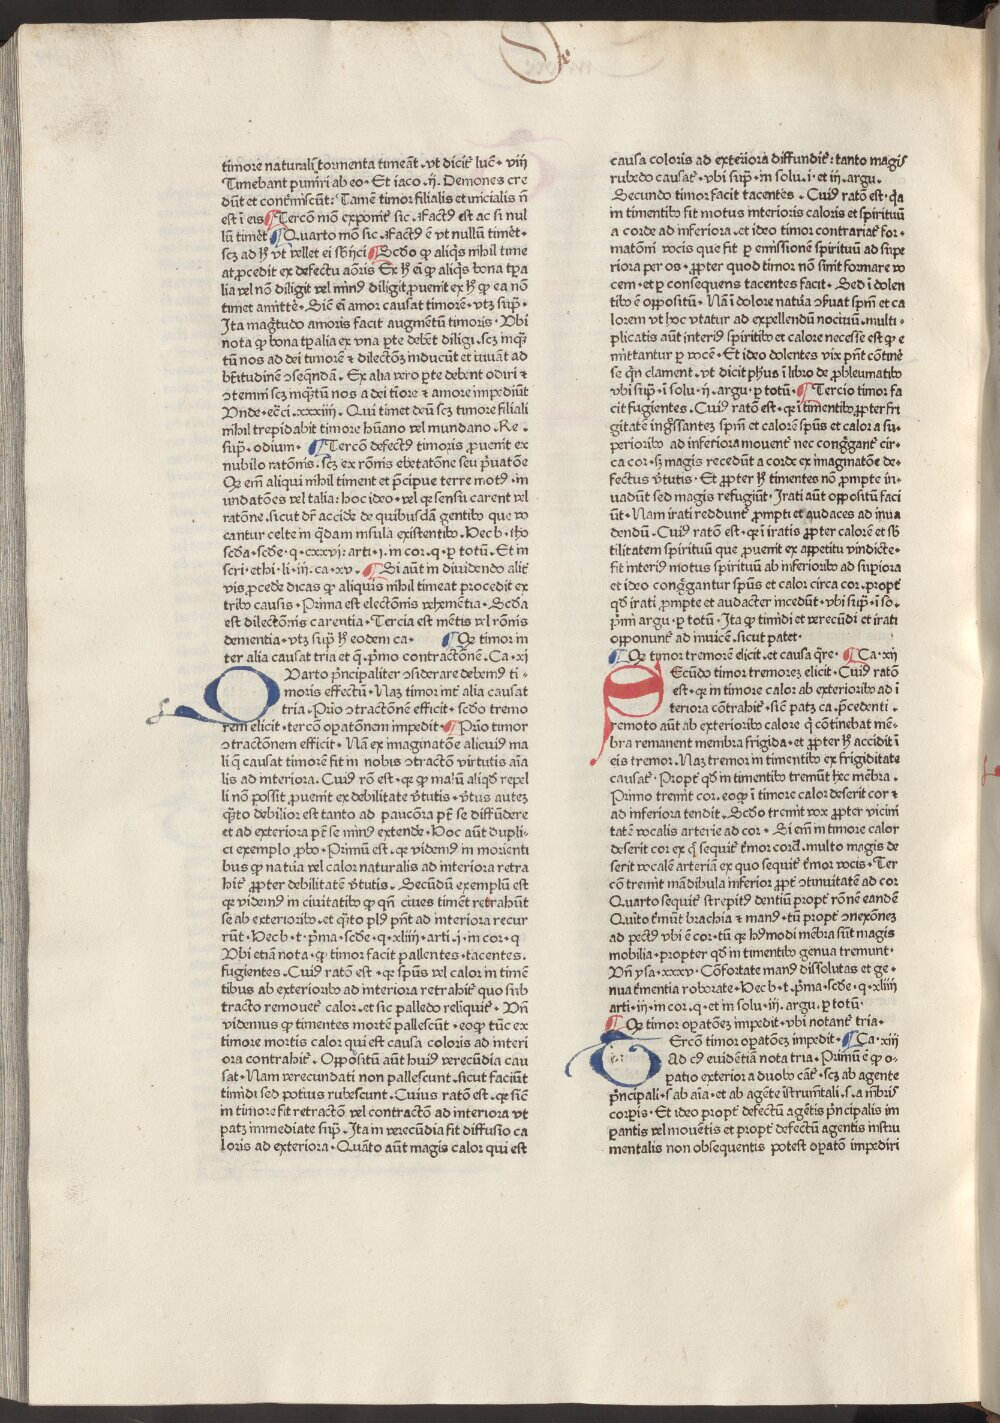 timore naturali tormenta timeāt. vt dicit̃ luc̃. viij
Timebant puniri ab eo. Et iaco. ij. Demones cre
dūt et contremiscūt: Tamē timor filialis et inicialis ñ
est ī eis ¶ Terco͂ mō exponit̃ sic. Factꝰ est ac si nul
lū timet ¶ Quarto mō sic. Factꝰ ē vt nullū timet.
scꝫ ad ħ ut vellet ei sb̄ijci ¶ Scd̄o ꝙ aliqis nihil time
at ꝓcedit ex defectu aōris Ex ħ ei ꝙ aliqs bona tp̄a
lia vel nō diligit vel minꝰ diligit ꝓuenit ex ħ ꝙ ea nō
timet amitte. Sic̄ ei amor causat timorē. vtꝫ sup̄.
Ita mag̃tudo amoris facit augmētū timoris. Vbi
nota ꝙ bona tp̄alia ex vna ꝑte debēt diligi. scꝫ inqͣ
tū nos ad dei timorē ⁊ dilectōꝫ inducūt et iuuāt ad
bt̄itudinē ↄseqndā. Ex alia vero ꝑte debēt odiri ⁊
ↄtemni scꝫ inqͣtū nos a dei tiōre ⁊ amore impediūt
Vnde. ecc̃i. xxxiiij. Qui timet deū scꝫ timore filiali
nihil trepidabit timore hūano vel mundano. Re.
sup̄. odium. ¶ Terco͂ defectꝰ timoris ꝓuenit ex
nubilo ratōnis. scꝫ ex rōnis ebetatōne seu pͥuatōe
Qꝛ em̄ aliqui nihil timent et p̄cipue terre motꝰ. in
undatōes vel talia: hoc ideo. vel qꝛ sensu carent vel
ratōne. sicut dr̄ accide de quibusdā gentibꝰ que vo
cantur celte in qͣdam insula existentibꝰ. Hec b. tho
scd̄a. scd̄e. q. cxxvi: arti. i. in cor. q. ꝑ totū. Et in
scri. ethi. li. iij. ca. xv. ¶ Si aūt in diuidendo alit̃
vis ꝓcede dicas ꝙ aliquis nihil timeat procedit ex
tribꝰ causis. Prima est electōnis vehementia. Scd̄a
est dilectōnis carentia. Tercia est mētis vel rōnis
dementia. vtꝫ sup̄ ħ eodem ca. ¶ Qꝙ timor in
ter alia causat tria et q̄. pͥmo contractōnē. Ca. xi
Varto pͥncipaliter ↄsiderare debemꝰ ti-
moris effectū. Naꝫ timor int̃ alia causat
tria. Pͥio ↄtractōnē efficit. scd̄o tremo
rem elicit. terco͂ oꝑatōnem impedit. ¶ Pͥio timor
ↄtractōnem efficit. Nā ex imaginatōe alicuiꝰ ma
li q̄ causat timorē fit in nobis ↄtractō virtutis aīa
lis ad interiora. Cuiꝰ rō est. qꝛ ꝙ malū aliqd̄ repel
li nō possit ꝓuenit ex debilitate v̄tutis. v̄tus auteꝫ
qͣto debilior est tanto ad paucōra pt̄ se diffūdere
et ad exteriora pt̄ se minꝰ extendē. Hoc aūt dupli-
ci exemplo ꝓbo. Primū est. qꝛ videmꝰ in morienti
bus ꝙ natūa vel calor naturalis ad interiora retra
hit̃ ꝓpter debilitatē v̄tutis. Secūdū exemplū est
qꝛ videmꝰ in ciuitatibꝰ ꝙ qn̄ ciues timēt retrahūt
se ab exterioribꝰ. et qͣto plꝰ pn̄t ad interiora recur
rūt. Hec b. t. pͥma. scd̄e. q. xliiij. arti. i. in cor. q
Vbi etiā nota. ꝙ timor facit pallentes. tacentes.
fugientes. Cuiꝰ ratō est. qꝛ spūs vel calor in timē
tibus ab exterioribꝰ ad interiora retrahit̃ quo sub
tracto remouet̃ calor. et sic palledo reliquit̃. Vn̄
videmus ꝙ timentes mortē pallescūt. eoꝙ tūc ex
timore mortis calor qui est causa coloris ad interi
ora contrahit̃. Oppositū aūt huiꝰ verecūdia cau
sat. Nam verecundati non pallescunt. sicut faciūt
timidi sed potius rubescunt. Cuius ratō est. qꝛ sic̄
in timore fit retractō vel contractō ad interiora vt
patꝫ immediate sup̄. Ita in verecūdia fit diffusio ca
loris ad exteriora. Quāto aūt magis calor qui est
causa coloris ad exteriora diffundit̃: tanto magis
rubedo causat̃. vbi sup̄. in solu. i. et iij. argu.
Secundo timor facit tacentes. Cuiꝰ ratō est. qͥa
in timentibꝰ fit motus interioris caloris et spirituū
a corde ad inferiora. et ideo timor contrariat̃ for.
matōni vocis que fit ꝑ emissionē spirituū ad supe
riora per os. ꝓpter quod timor nō sinit formare vo
cem. et ꝑ consequens tacentes facit. Sed ī dolen
tibꝰ ē oppositū. Nā ī dolore natūa ↄẜuat spm̄ et ca
lorem vt hoc vtatur ad expellendū nociuū. multi.
plicatis aūt interiꝰ spiritibꝰ et calore necesse est ꝙ e
mittantur ꝑ vocē. Et ideo dolentes vix pn̄t cōtine
se qn̄ clament. vt dicit ph̄us ī libro de ꝓbleumatibꝰ
vbi sup̄. ī solu. ij. argu. ꝑ totū. ¶ Tercio timor fa
cit fugientes. Cuiꝰ ratō est. qꝛ ī timentibꝰ ꝓpter fri
giditatē ingssantez spm̄ et calorē spūs et calor a su.
perioribꝰ ad inferiora mouent̃ nec cong̃gant̃ cir.
ca cor. sꝫ magis recedūt a corde ex imaginatōe de.
fectus v̄tutis. Et ꝓpter ħ timentes nō ꝓmpte in.
uadūt sed magis refugiūt. Irati aūt oppositū faci
ūt. Nam irati reddunt̃ ꝓmpti et audaces ad inua
dendū. Cuiꝰ ratō est. qꝛ ī iratis ꝓpter calorē et sb̄
tilitatem spirituū que ꝓuenit ex appetitu vindicte.
fit interiꝰ motus spirituū ab inferioribꝰ ad suꝑiora
et ideo cong̃gantur spūs et calor circa cor. propt̃
qd̄ irati ꝓmpte et audacter incedūt. vbi sup̄. ī so.
pͥmi argu. ꝑ totū. Ita ꝙ timidi et verecūdi et irati
opponunt̃ ad inuicē. sicut patet.
¶ Qꝙ timor tremorē elicit. et causa qͣre. ¶ Ca. xij
Ecūdo timor tremoreꝫ elicit. Cuiꝰ ratō
est. qꝛ in timore calor ab exterioribꝰ ad ī
teriora cōtrahit̃. sic̄ patꝫ ca. p̄cedenti.
remoto aūt ab exterioribꝰ calore qͥ cōtinebat mē-
bra remanent membra frigida. et ꝓpter ħ accidit ī
eis tremor. Naꝫ tremor in timentibꝰ ex frigiditate
causat̃. Propt̃ qd̄ in timentibꝰ tremūt hec mēbra.
Primo tremit cor. eoꝙ ī timore calor deserit cor ⁊
ad inferiora tendit. Scd̄o tremit vox ꝓpter vicini
tatē vocalis arterie ad cor. Si em̄ in timore calor
deserit cor ex q̊ sequit̃ t̃mor cord̄. multo magis de
serit vocalē arteriā ex quo sequit̃ t̃mor vocis. Ter
cō tremit mādibula inferior ꝓpt̃ ↄtinuitatē ad cor
Quarto sequit̃ strepitꝰ dentiū propt̃ rōnē eandē
Quīto t̃mūt brachia ⁊ manꝰ. tū propt̃ ↄnexōneꝫ
ad pectꝰ vbi ē cor. tū qꝛ hꝰmodi mēbra sūt magis
mobilia. propter qd̄ in timentibꝰ genua tremunt.
Vn̄ ysa. xxxv. Cōfortate manꝰ dissolutas et ge.
nua t̃mentia roborate. Hec b. t. pͥma. scd̄e. q. xliiij
arti. iij. in cor. q. et in solu. iij. argu. ꝑ totū.
¶ Qꝙ timor oꝑatōeꝫ impedit. vbi notant̃ tria.
Ercō timor oꝑatōeꝫ impedit. ¶ Ca. xiij
Ad cꝰ euidētiā nota tria. Primū ē ꝙ o-
patio exterior a duobꝰ cāt̃. scꝫ ab agente
pͥncipali. s. ab aīa. et ab agēte īstrum̄tali. s. a mb̄ris
corꝑis. Et ideo propt̃ defectū agētis pͥncipalis im
ꝑantis vel mouētis et propt̃ defectū agentis instru
mentalis non obsequentis potest oꝑatō impediri